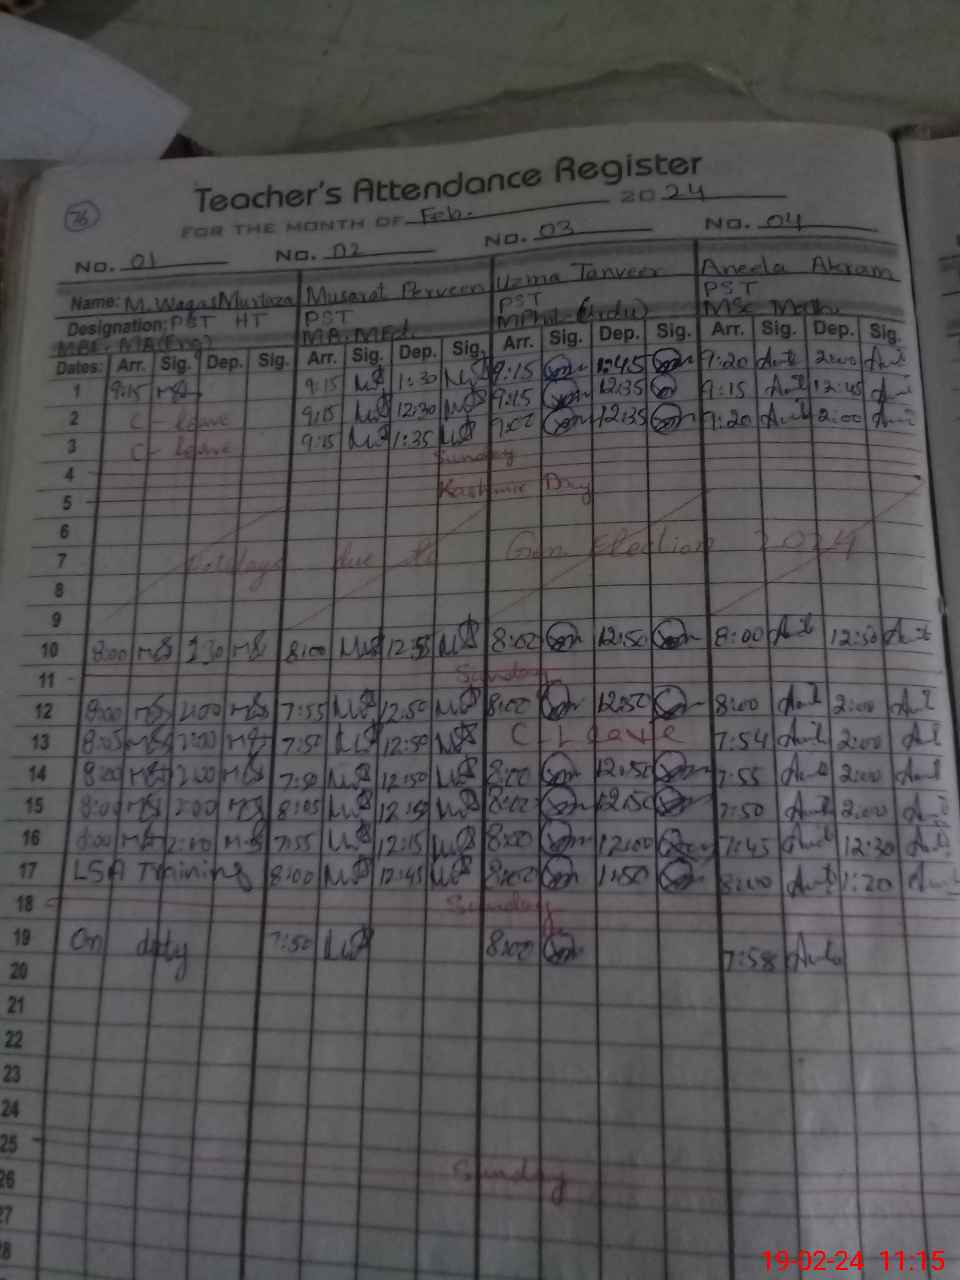 76
Teacher's Attendance Register
FOR THE MONTH OF Feb. 2024
No. 01 No. 02 No. 03 No. 04
Name: M. Waqas Murtaza Musarat Perveen Uzma Tanveer Aneela Akram
Designation: PST HT PST PST PST
MA (Eng) MA. MEd. MPhil (Urdu) MSc Math
Dates: Arr. Sig. Dep. Sig. Arr. Sig. Dep. Sig. Arr. Sig. Dep. Sig. Arr. Sig. Dep. Sig.
1 9:15 9:15 1:30 9:15 1:45 9:20 2:00
2 C- leave 9:15 12:30 9:15 12:35 9:15 12:45
3 C- leave 9:15 1:35 9:02 12:35 9:20 2:00
4 Sunday
5 Kashmir Day
6
7 Holidays due to Gen. Election 2024
8
9
10 8:00 1:30 8:00 12:55 8:02 12:50 8:00 12:50
11 Sunday
12 8:00 2:00 7:55 12:50 8:00 12:50 8:00 2:00
13 8:05 2:00 7:50 12:50 C-Leave 7:54 2:00
14 8:00 2:00 7:50 12:50 8:00 12:50 7:55 2:00
15 8:00 2:00 8:05 12:50 8:02 12:50 7:50 2:00
16 8:00 2:00 7:55 12:15 8:00 12:00 7:45 12:30
17 LSA Training 8:00 12:45 8:00 1:50 8:00 1:20
18 Sunday
19 On duty 7:50 8:00 7:58
20
21
22
23
24
25
26 Sunday
27
28
19-02-24 11:15